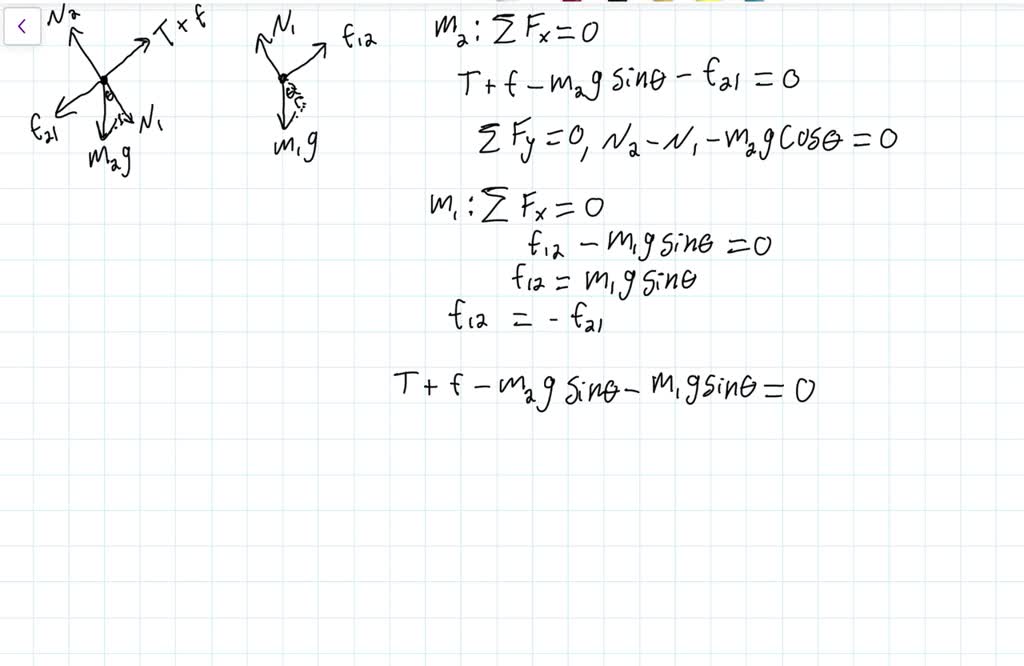 N₂
T × f
f₂₁
N₁
m₂g
N₁
f₁₂
m₁g
m₂: ΣFₓ=0
T+f-m₂g sinθ-f₂₁=0
ΣFy=0, N₂-N₁-m₂g cosθ=0
m₁: ΣFₓ=0
f₁₂-m₁g sinθ=0
f₁₂=m₁g sinθ
f₁₂=-f₂₁
T+f-m₂g sinθ-m₁g sinθ=0